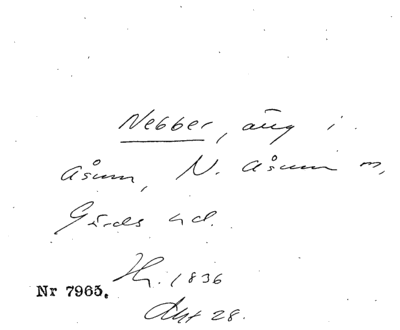 Nebber, äng i
Åsum, N. Åsum sn,
Gärds hd.
Hr. 1836
Akt 28.
Nr 7965.